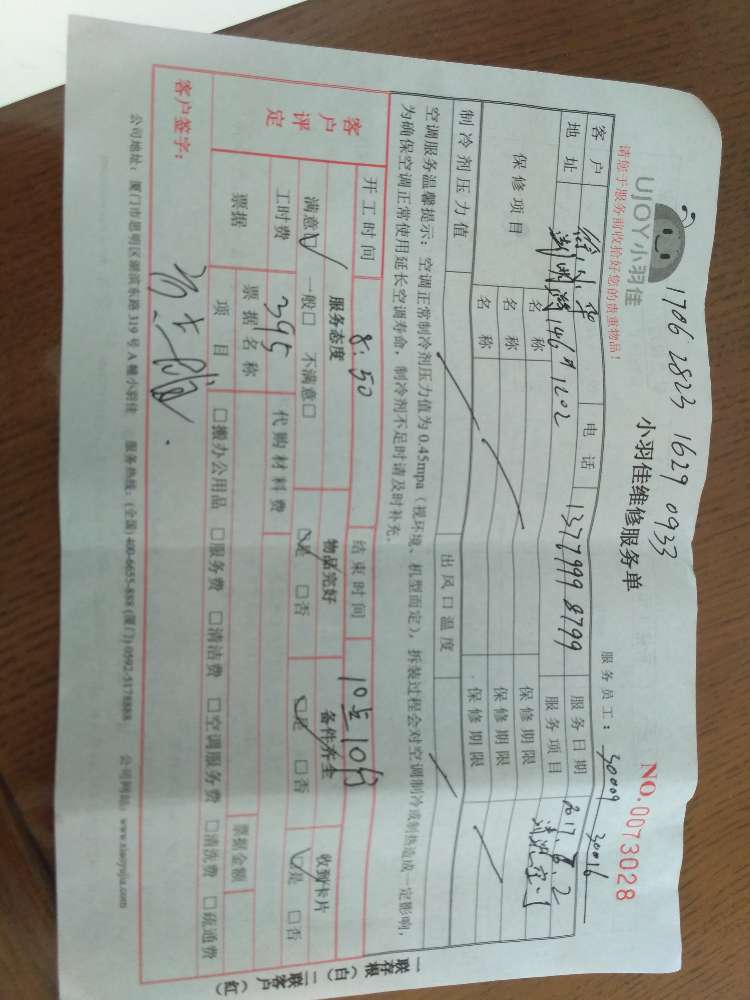 1706 2823 1629 0933
UJOY小羽佳
小羽佳维修服务单
NO.0073028
请您于服务前收拾好您的贵重物品！
服务员工：30009 30016
客户
电话 13779998799
服务日期 2017.8.2
地址 146# 1202
服务项目
保修项目
名称
保修期限
名称
保修期限
名称
保修期限
制冷剂压力值
出风口温度
空调服务温馨提示：空调正常制冷剂压力值为0.45mpa（视环境、机型而定），拆装过程会对空调制冷或制热造成一定影响，
为确保空调正常使用延长空调寿命，制冷剂不足时请及时补充。
开工时间 8:50
结束时间 10点10分
客户评定
服务态度
物品完好
备件齐全
收到卡片
满意☑ 一般□ 不满意□
☑是 □否
☑是 □否
☑是 □否
工时费 395
代购材料费
票据
票据名称
票据金额
项目
□搬办公用品 □服务费 □清洁费 □空调服务费 □清洗费 □疏通费
客户签字：
公司地址：厦门市思明区湖滨东路319号A幢小羽佳 服务热线：(全国) 400-6655-888 (厦门) 0592-5178888 公司网站：www.xiaoyujia.com
一联存根（白） 二联客户（红）